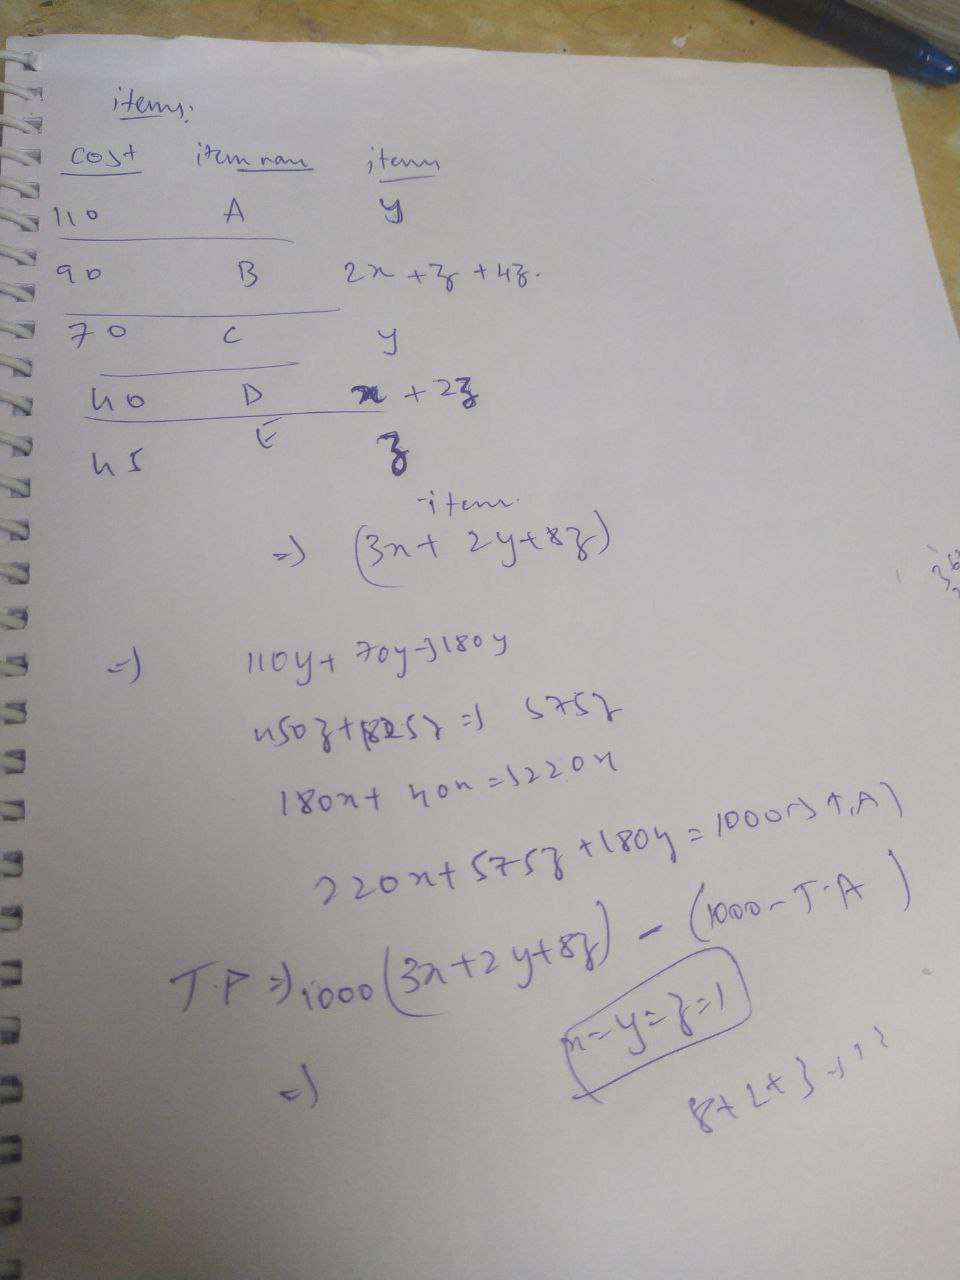 items:
cost item nam items
110 A y
90 B 2x + z + 4z.
70 C y
40 D x + 2z
45 E z
item
=) (3x + 2y + 8z)
=) 110y + 70y =) 180y
450z + 125z =) 575z
180x + 40x =) 220x
220x + 575z + 180y = 1000 T.A)
T.P =) 1000 (3x + 2y + 8z) - (1000 - T.A)
x = y = z = 1
=)
8 + 2 + 3